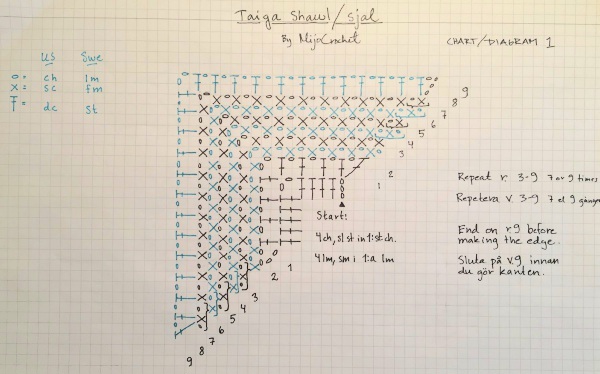 Taiga Shawl/sjal
By MijoCrochet
CHART/DIAGRAM 1
US Swe
o = ch lm
x = sc fm
Ŧ = dc st
9
8
7
6
5
4
3
2
1
Start:
4ch, slst in 1:st ch.
4lm, sm i 1:a lm
Repeat r. 3-9 7 or 9 times
Repetera v. 3-9 7 el 9 gånger
End on r9 before
making the edge..
Sluta på v.9 innan
du gör kanten..
1
2
3
4
5
6
7
8
9